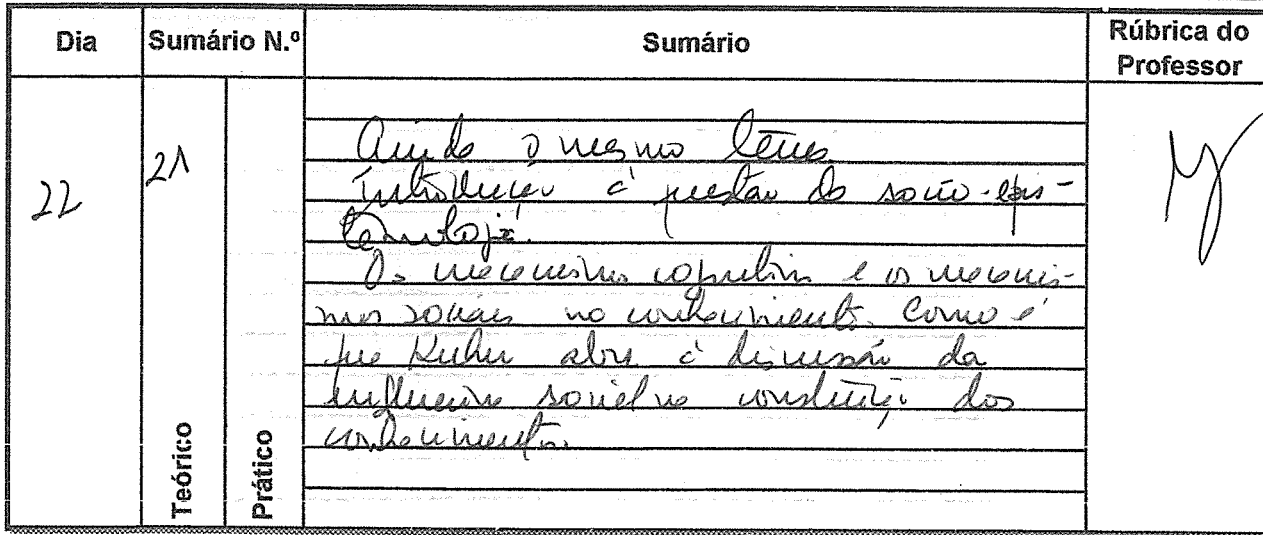 Dia Sumário N.º Sumário Rúbrica do Professor
22 21
Teórico Prático
Ainda o mesmo tema.
Introdução à questão da socio-epis-
temologia.
Os mecanismos cognitivos e os mecanis-
mos sociais no conhecimento. Como é
que Kuhn abre à discussão da
influência social na constituição dos
conhecimentos.